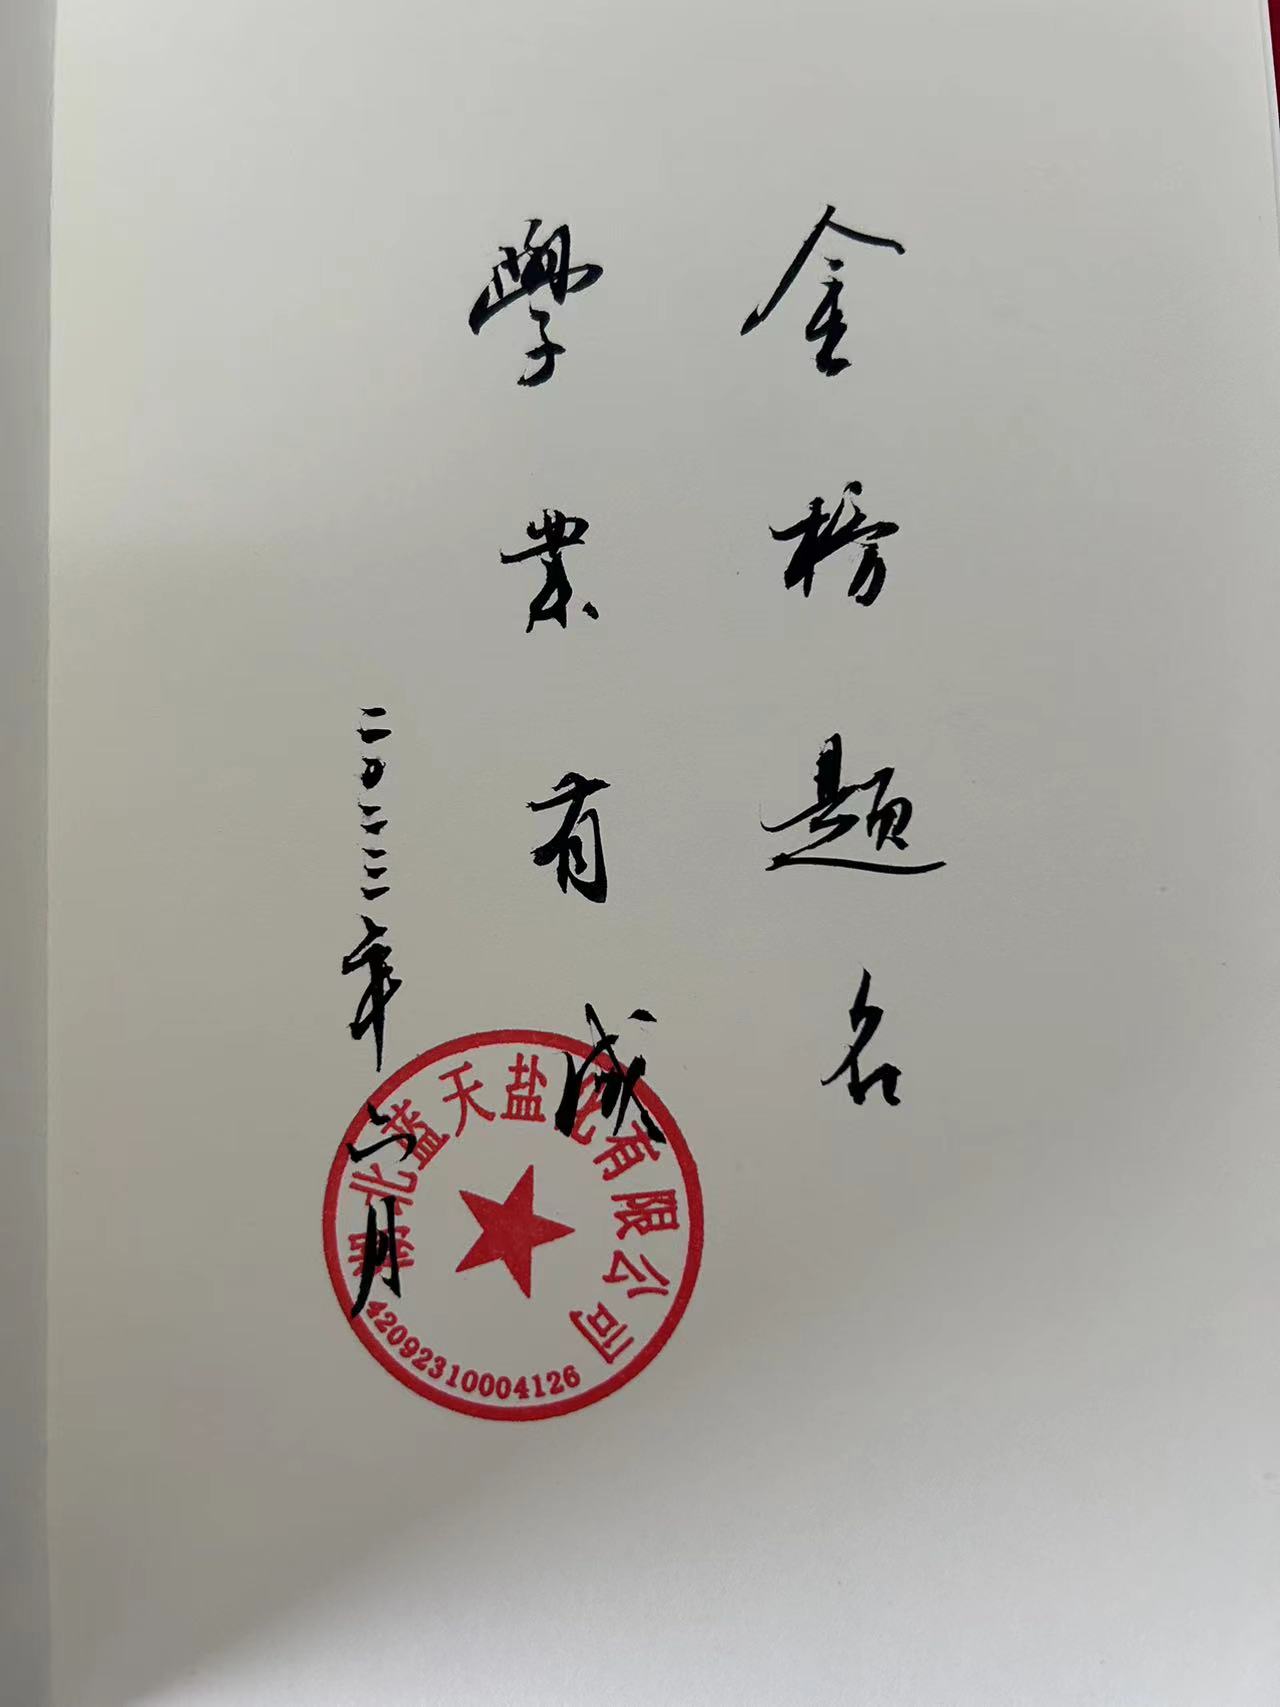 金榜题名
學業有成
二〇二三年六月
湖北蓝天盐化有限公司
42092310004126